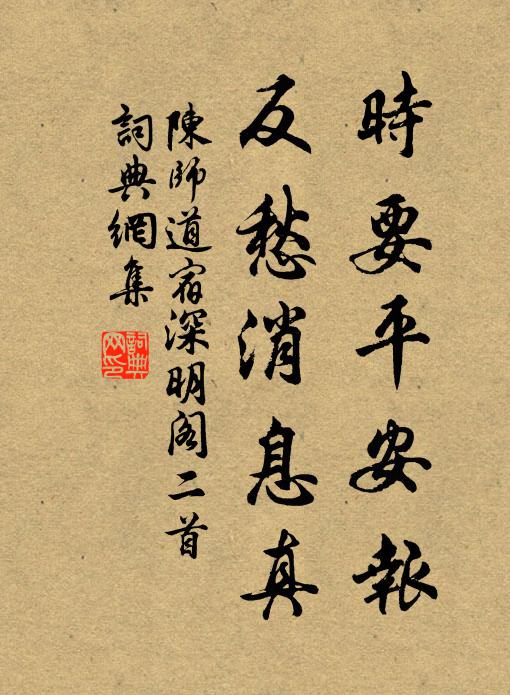 時要平安報
反愁消息真
陳師道宿深明閣二首
詞典網集
詞典網印